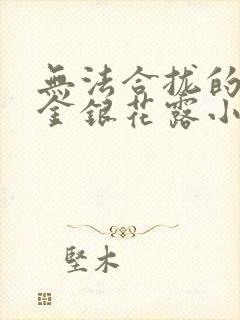 無法合拢的
金銀花露小
堅木